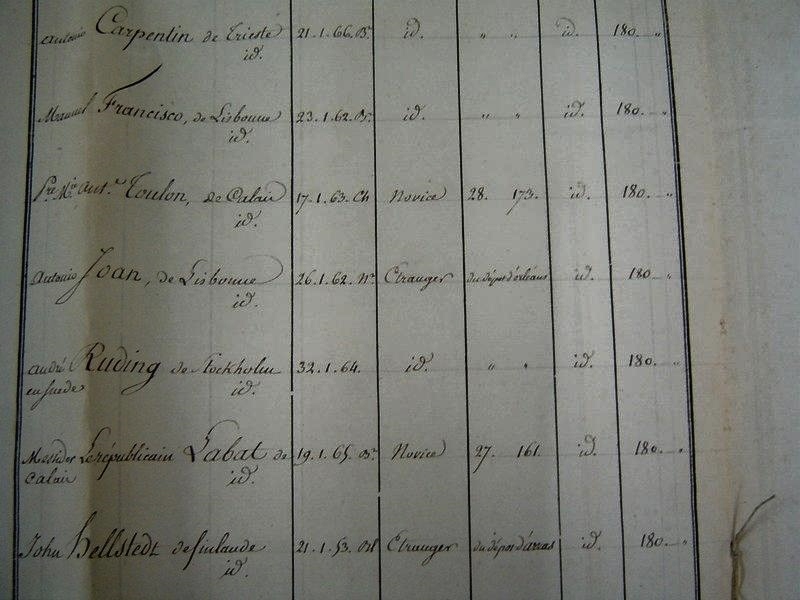 Antonio Carpentin de Trieste 21.1.66. Bn. id. " " id. 180. "
id.
Manuel Francisco, de Lisbonne 23.1.62. Bn. id. " " id. 180. "
id.
Pre. Mie. Ant.e Toulon, de Calais 17.1.63. Ch Novice 28. 173. id. 180. "
id.
Antonio Joan, de Lisbonne 26.1.62. Nr. Etranger du dépot d'orléans id. 180. "
id.
André Ruding de Stockholm 32.1.64. id. " " id. 180. "
en suede id.
Messidor Lerépublicain Labat de 19.1.65. Bn. Novice 27. 161. id. 180. "
Calais id.
John Hellstedt de finlande 21.1.53. Bl Etranger du dépot d'arras id. 180. "
id.